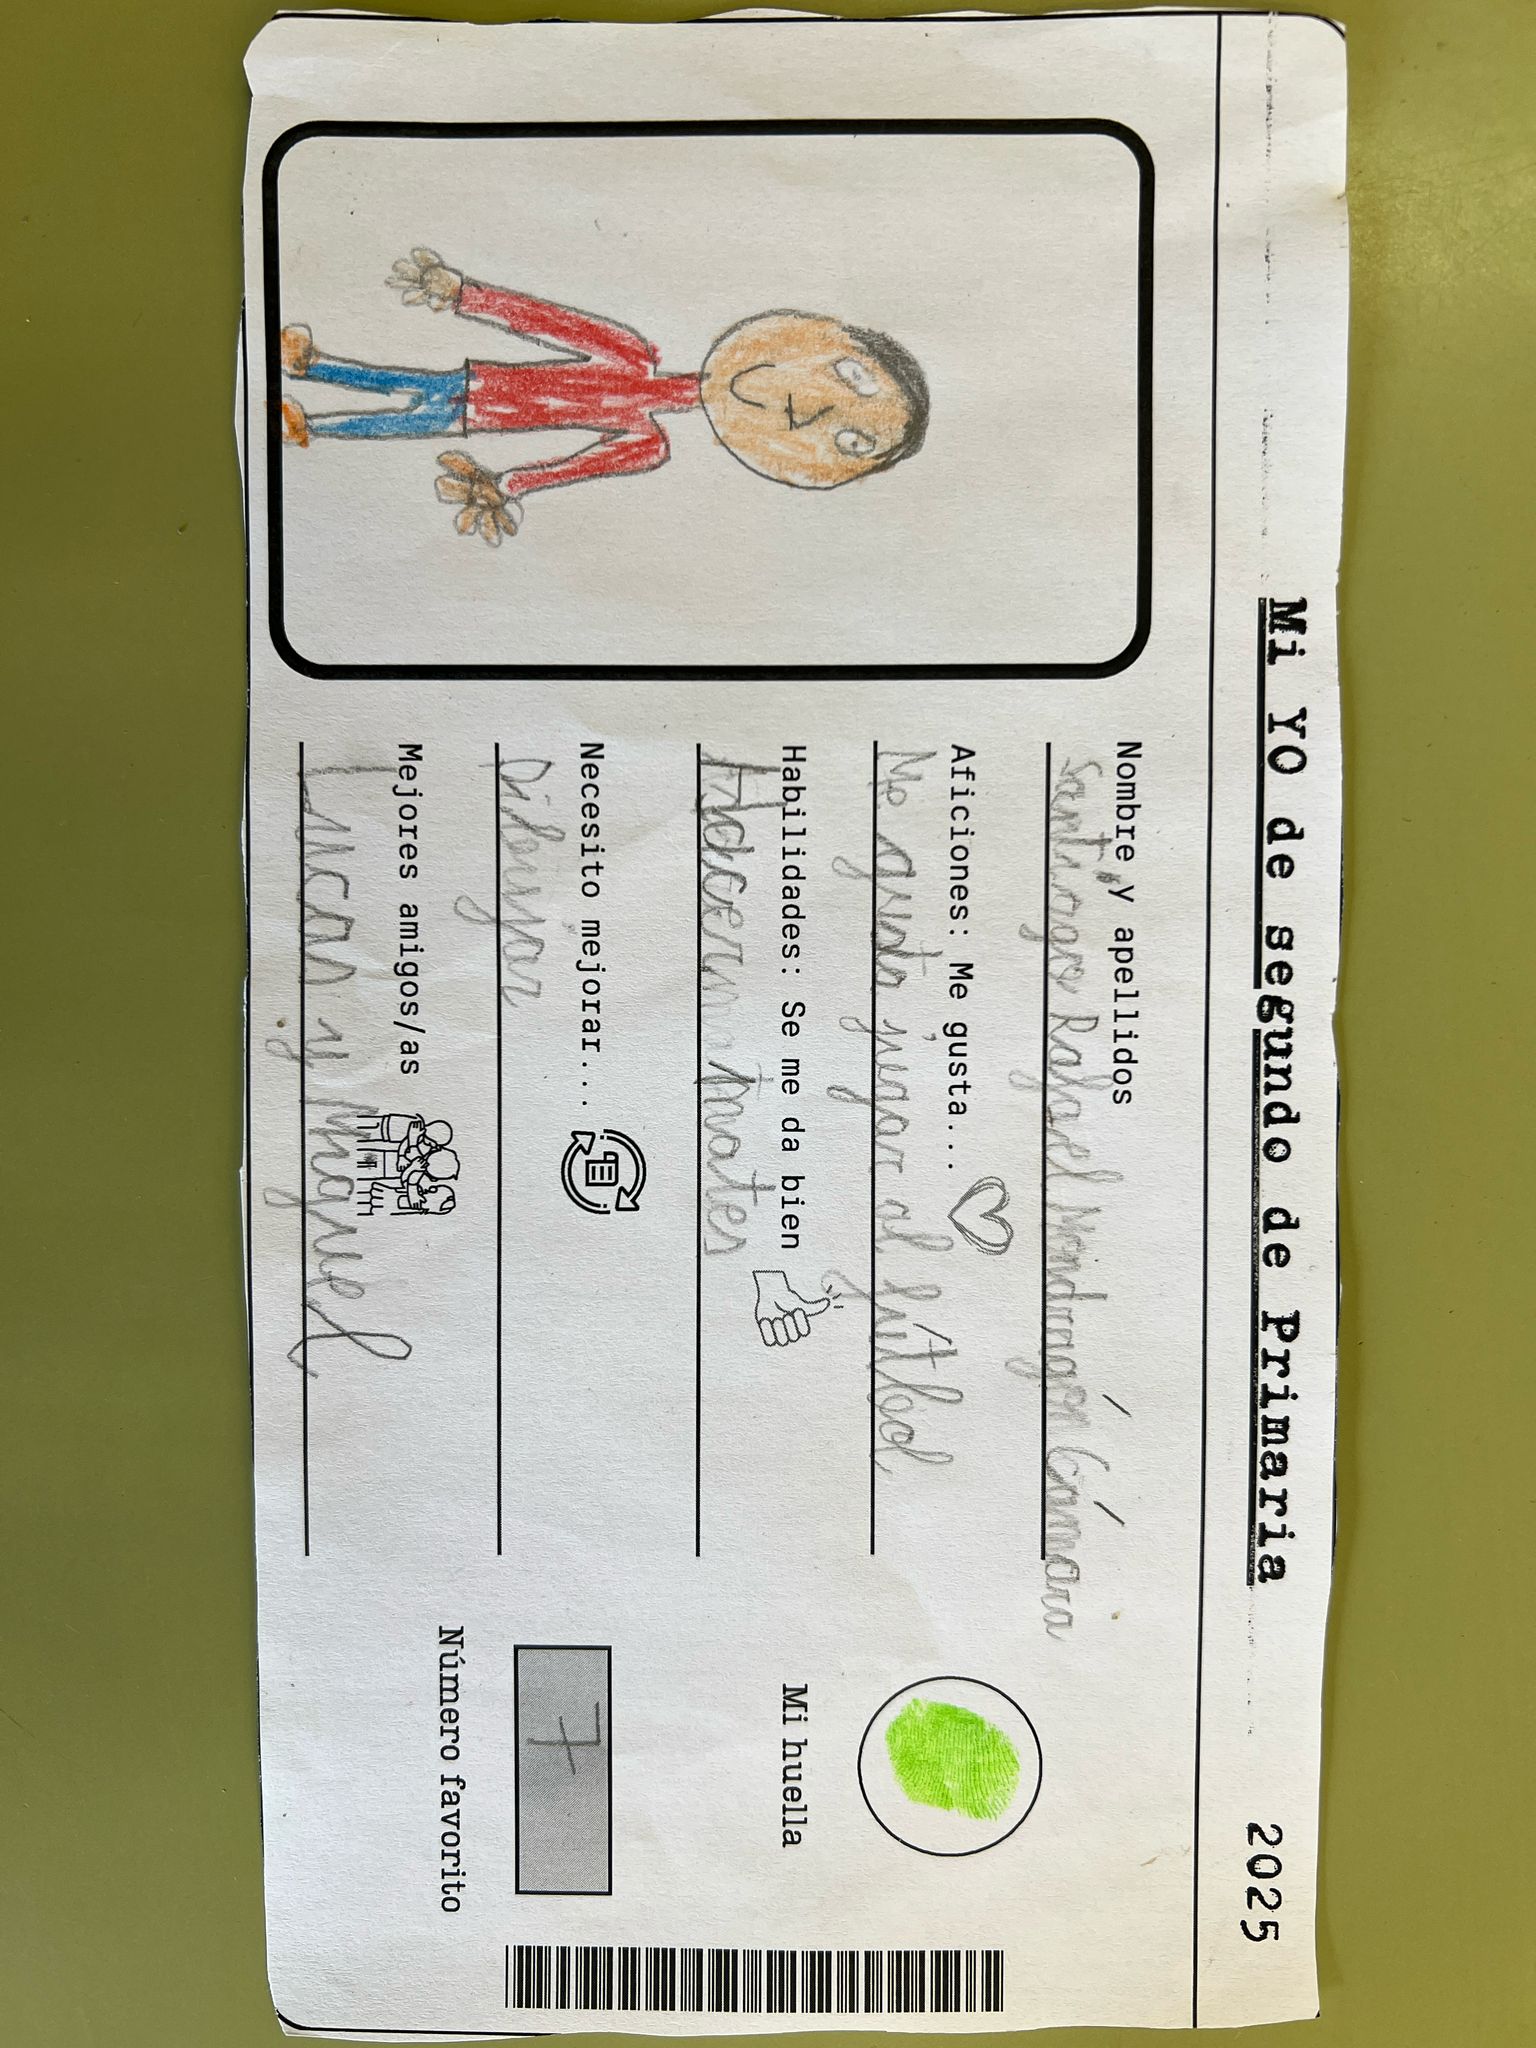 Mi YO de segundo de Primaria
2025
Nombre y apellidos
Santiago Rafael Mondragón Cámara
Aficiones: Me gusta...
Me gusta jugar al fútbol
Habilidades: Se me da bien
Hacer mates
Necesito mejorar...
Dibujar
Mejores amigos/as
Lucas y Miguel
Mi huella
7
Número favorito